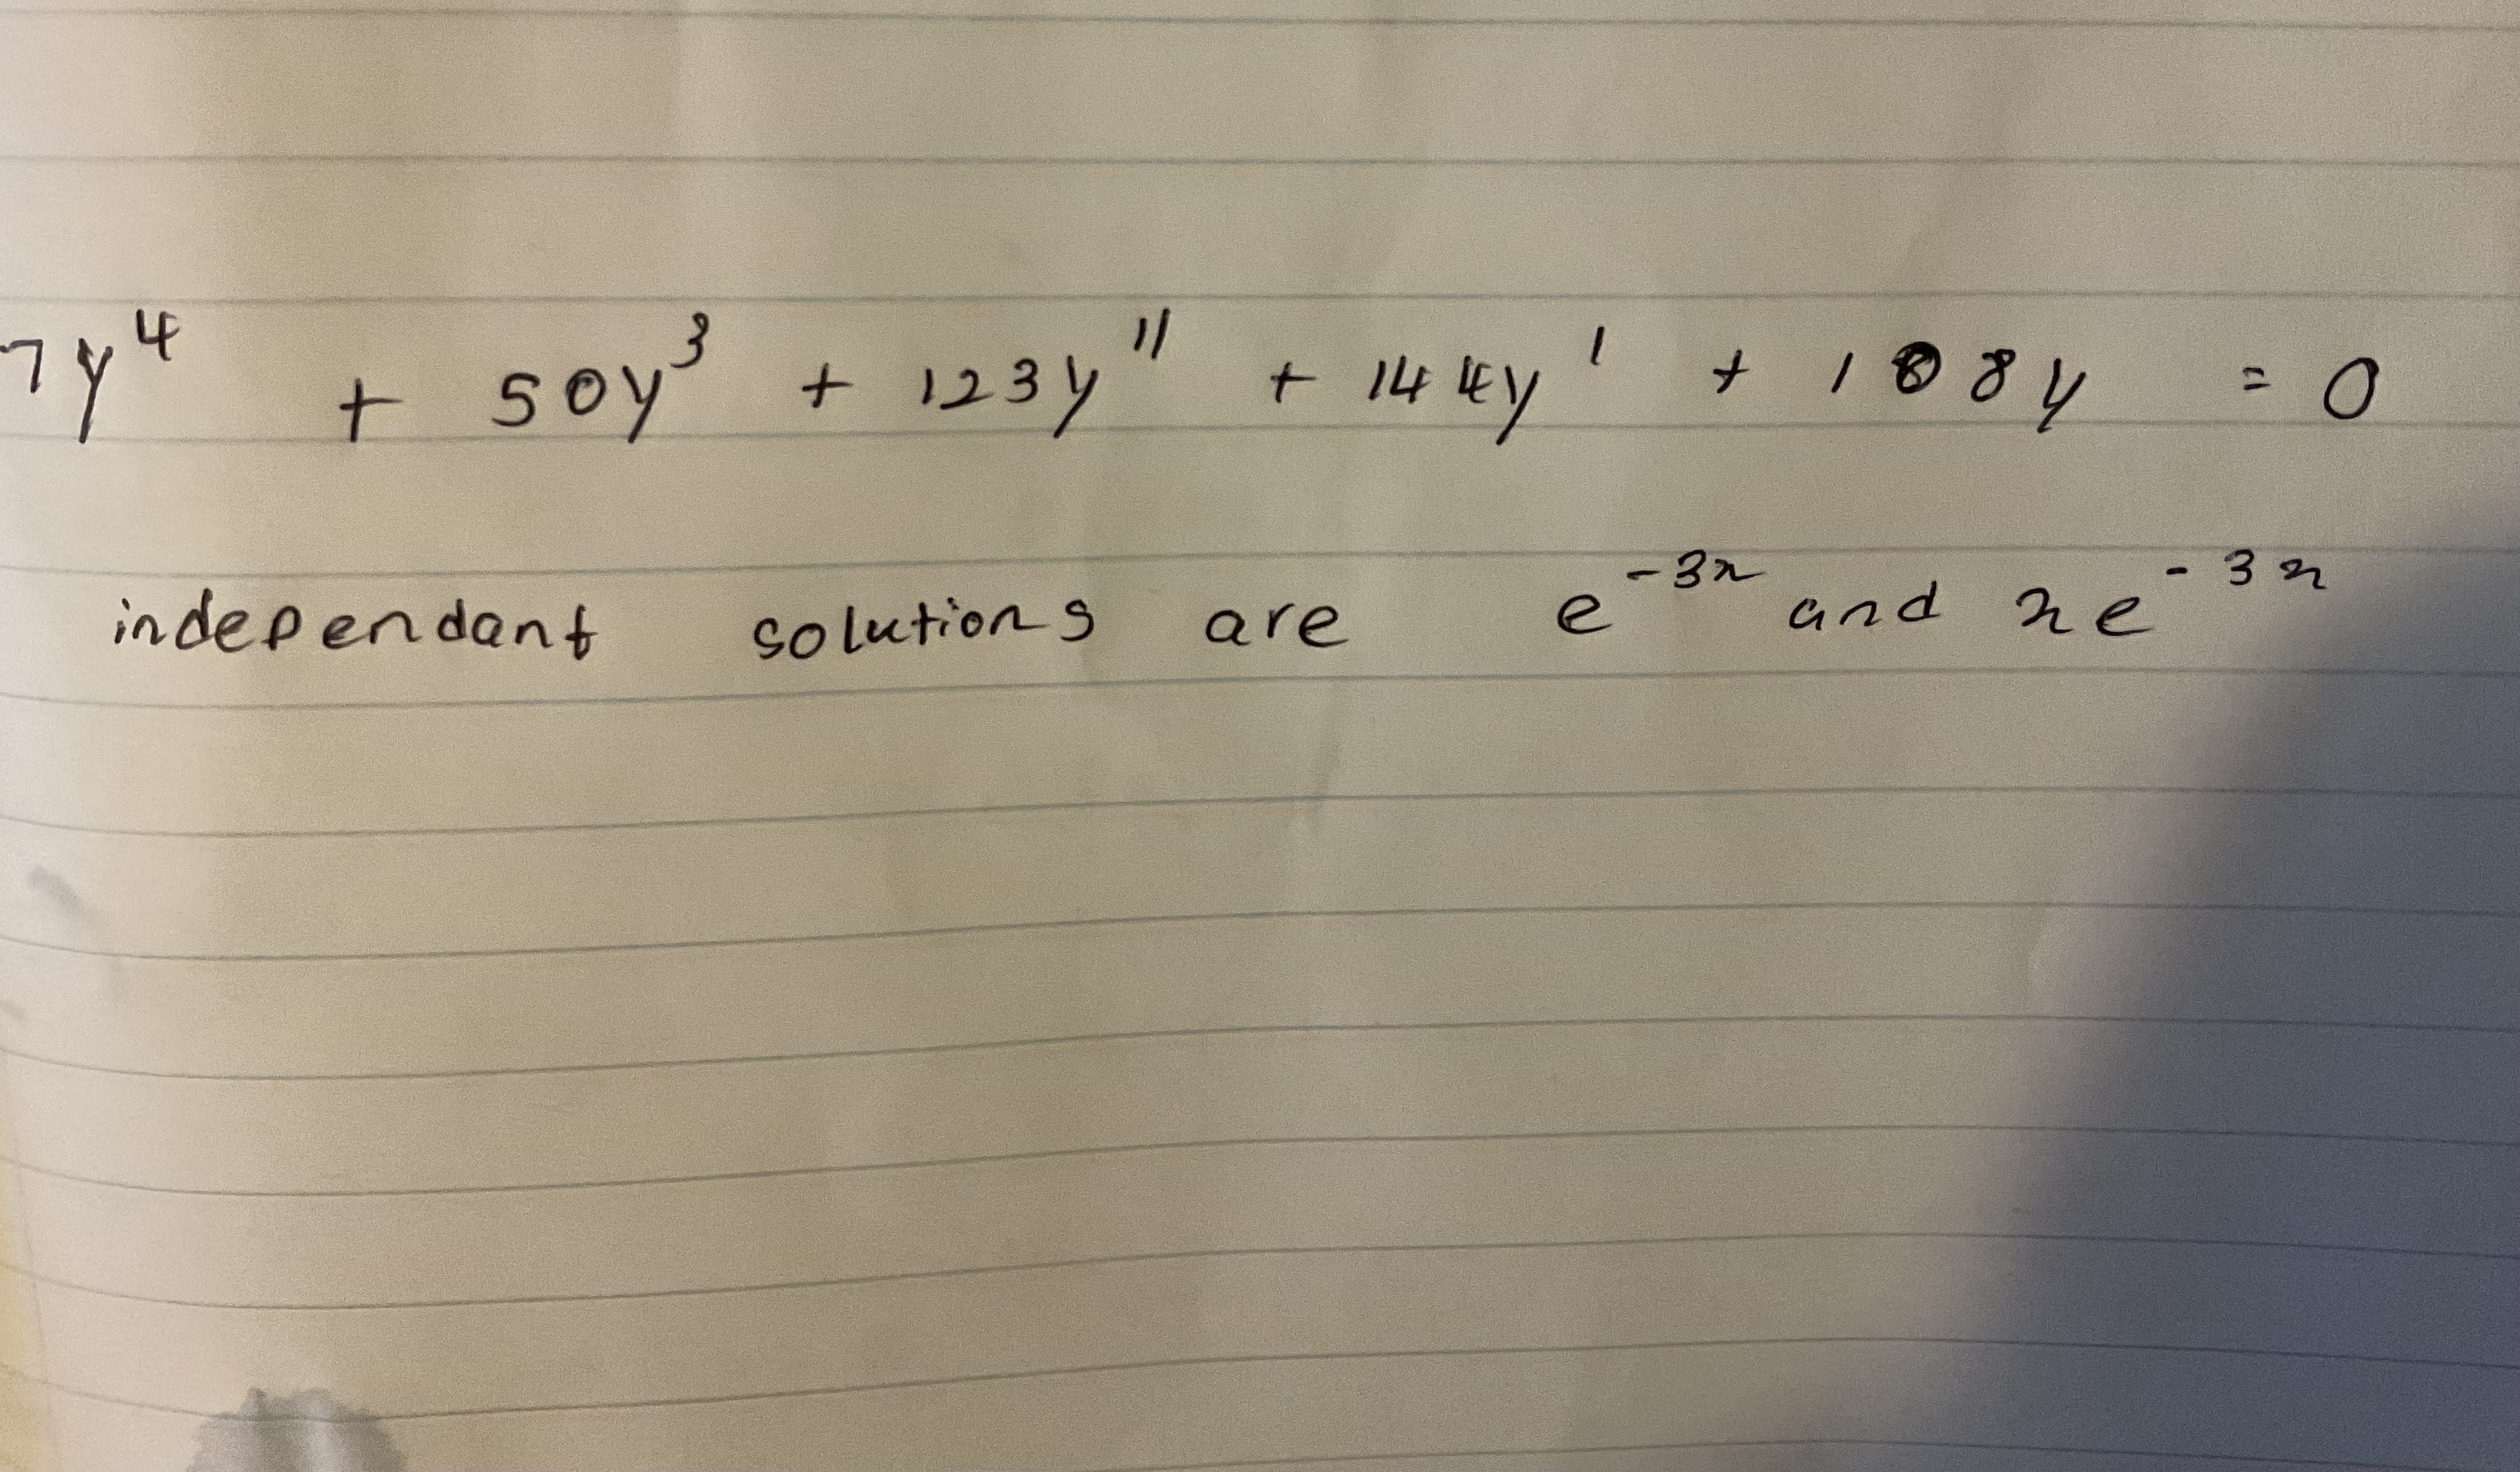 7y⁴ + 50y³ + 123y'' + 144y' + 108y = 0
independant solutions are e⁻³ˣ and xe⁻³ˣ